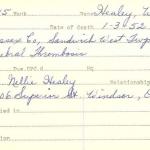 15 Mark Name Healey, W
Date of death 1-3-52
ssex Co, Sandwich West Twp
ebral Thrombosis
Due DVC.C Hq
Nellie Healey Relationship
06 Superior St. Windsor, O
ied to
tion